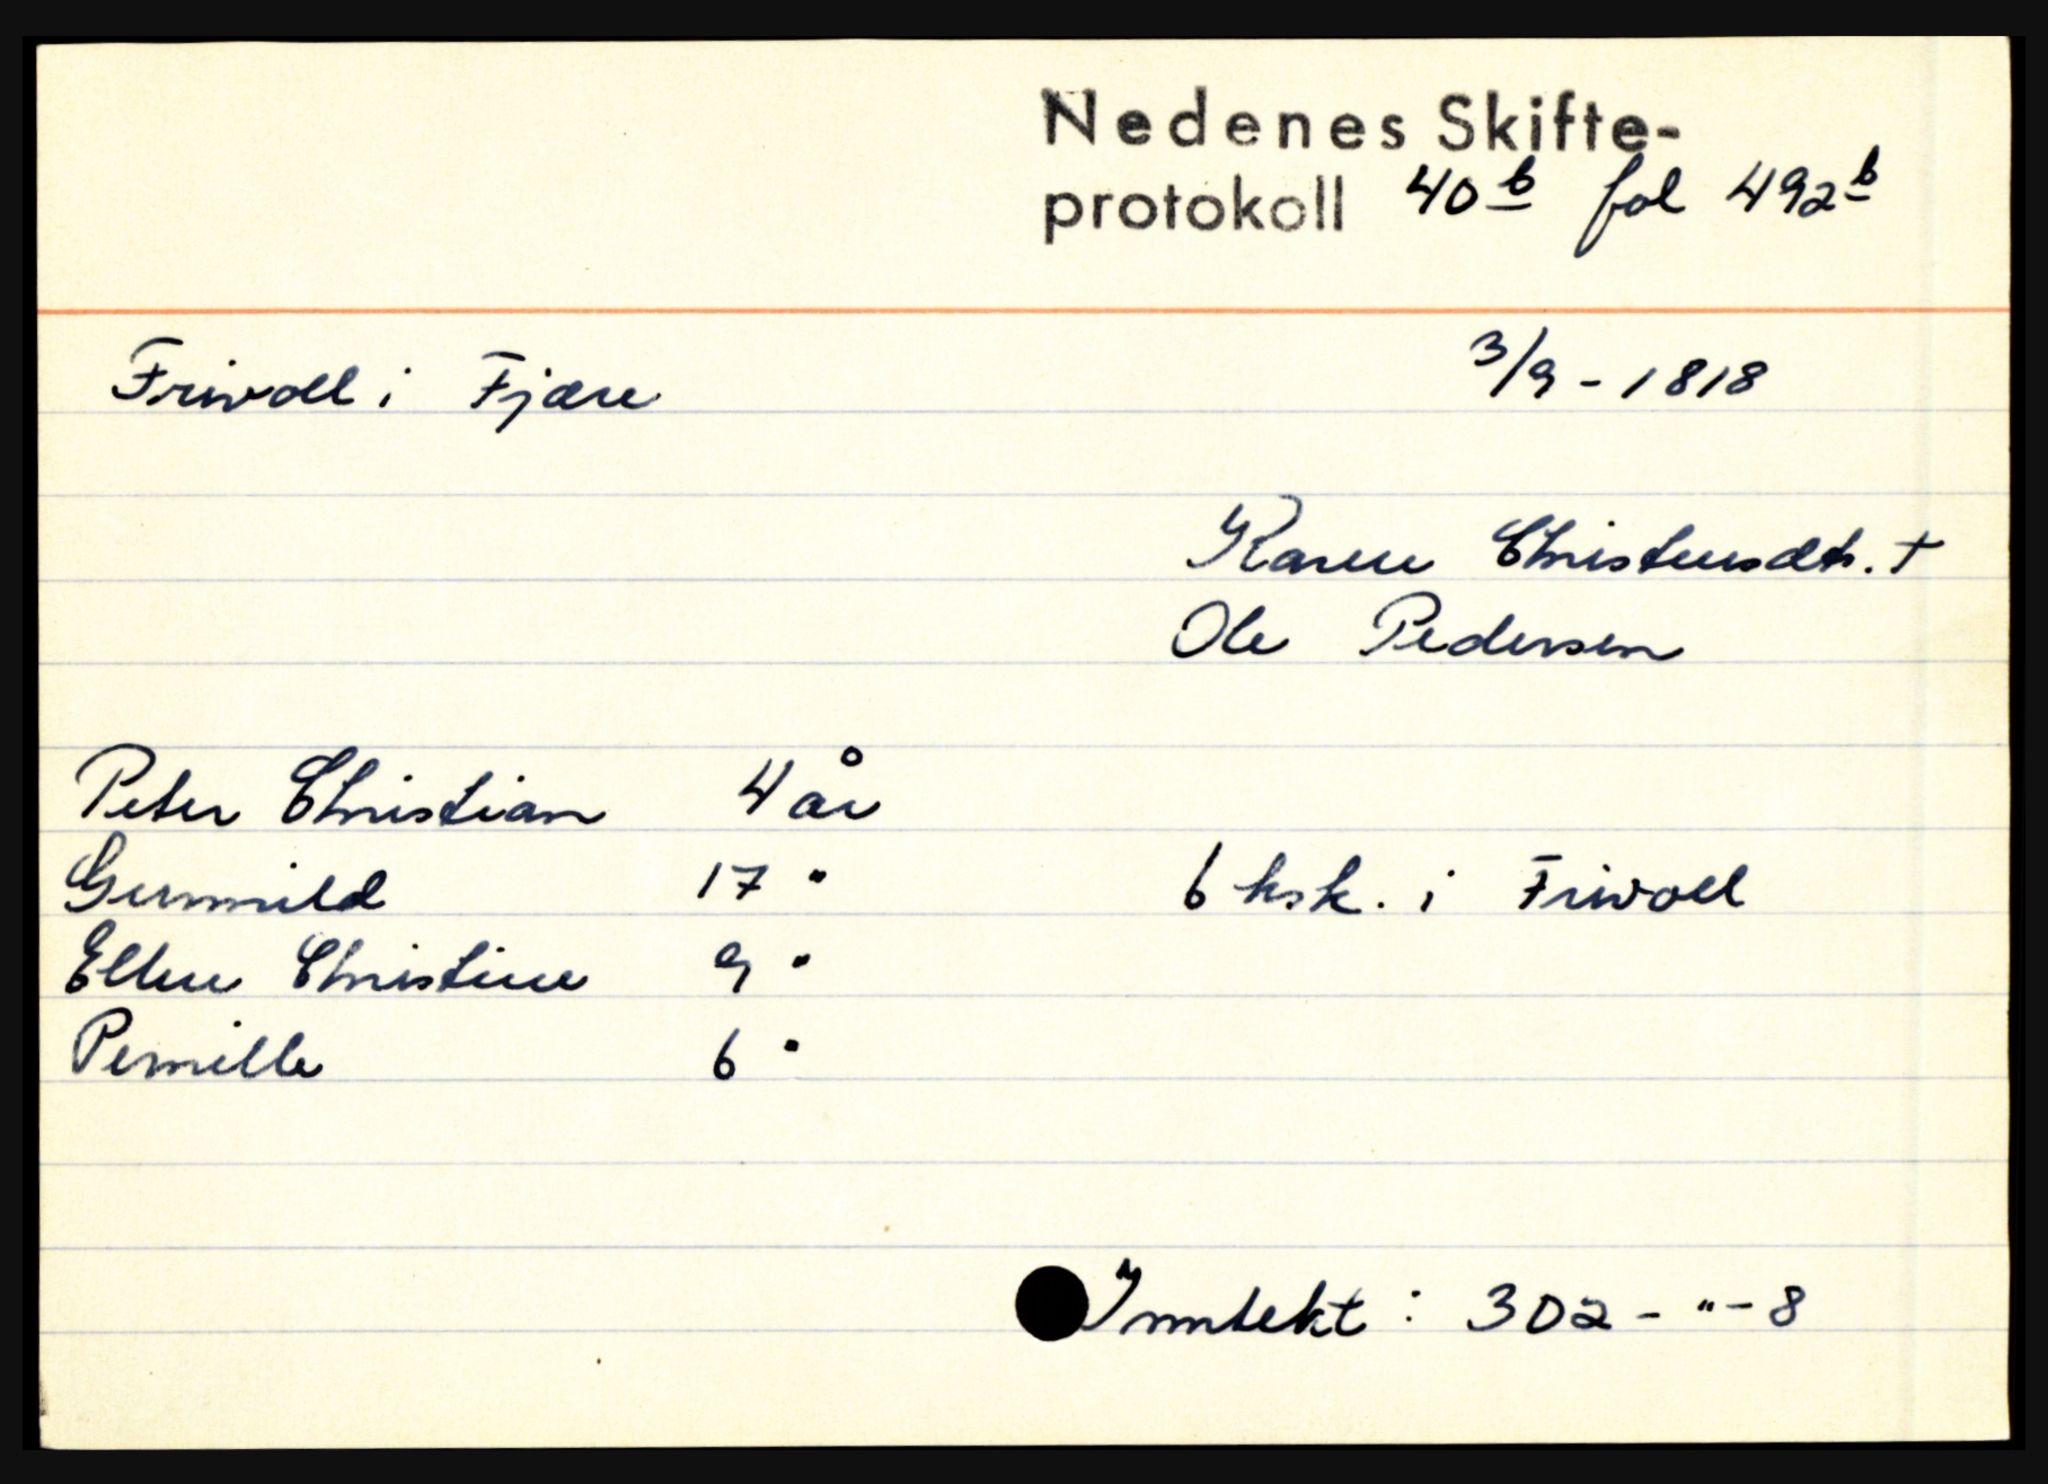 Nedenes Skifte-
protokoll 40b fol 492b
Frivoll i Fjære 3/9 - 1818
Karen Christensdtr. †
Ole Pedersen
Peter Christian 4 år
Gunnild 17 " 6 ksk. i Frivoll
Ellen Christine 9 "
Pernille 6 "
Inntekt : 302 - " - 8